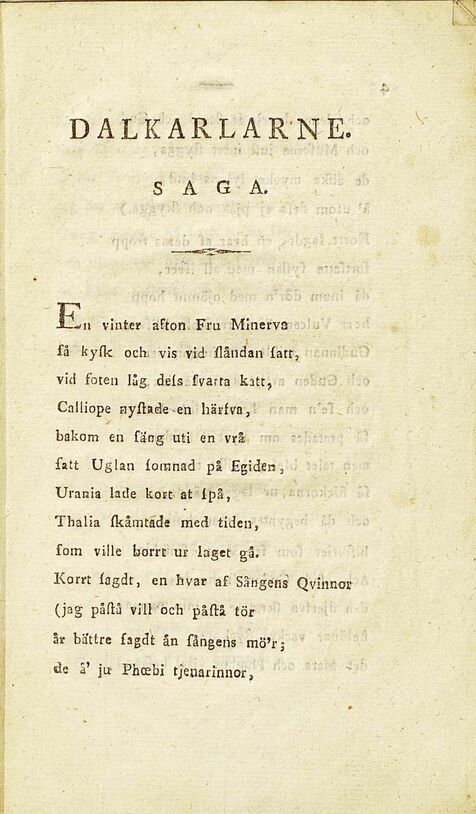 DALKARLARNE.
SAGA.
En vinter afton Fru Minerva
ſå kyſk och vis vid ſländan ſatt,
vid foten låg deſs ſvarta katt,
Calliope nyſtade en härfva,
bakom en ſäng uti en vrå
ſatt Uglan ſomnad på Egiden,
Urania lade kort at ſpå,
Thalia ſkämtade med tiden,
ſom ville borrt ur laget gå.
Korrt ſagdt, en hvar af Sångens Qvinnor
(jag påſtå vill och påſtå tör
är bättre ſagdt än ſångens mö'r;
de ä' ju Phœbi tjenarinnor,